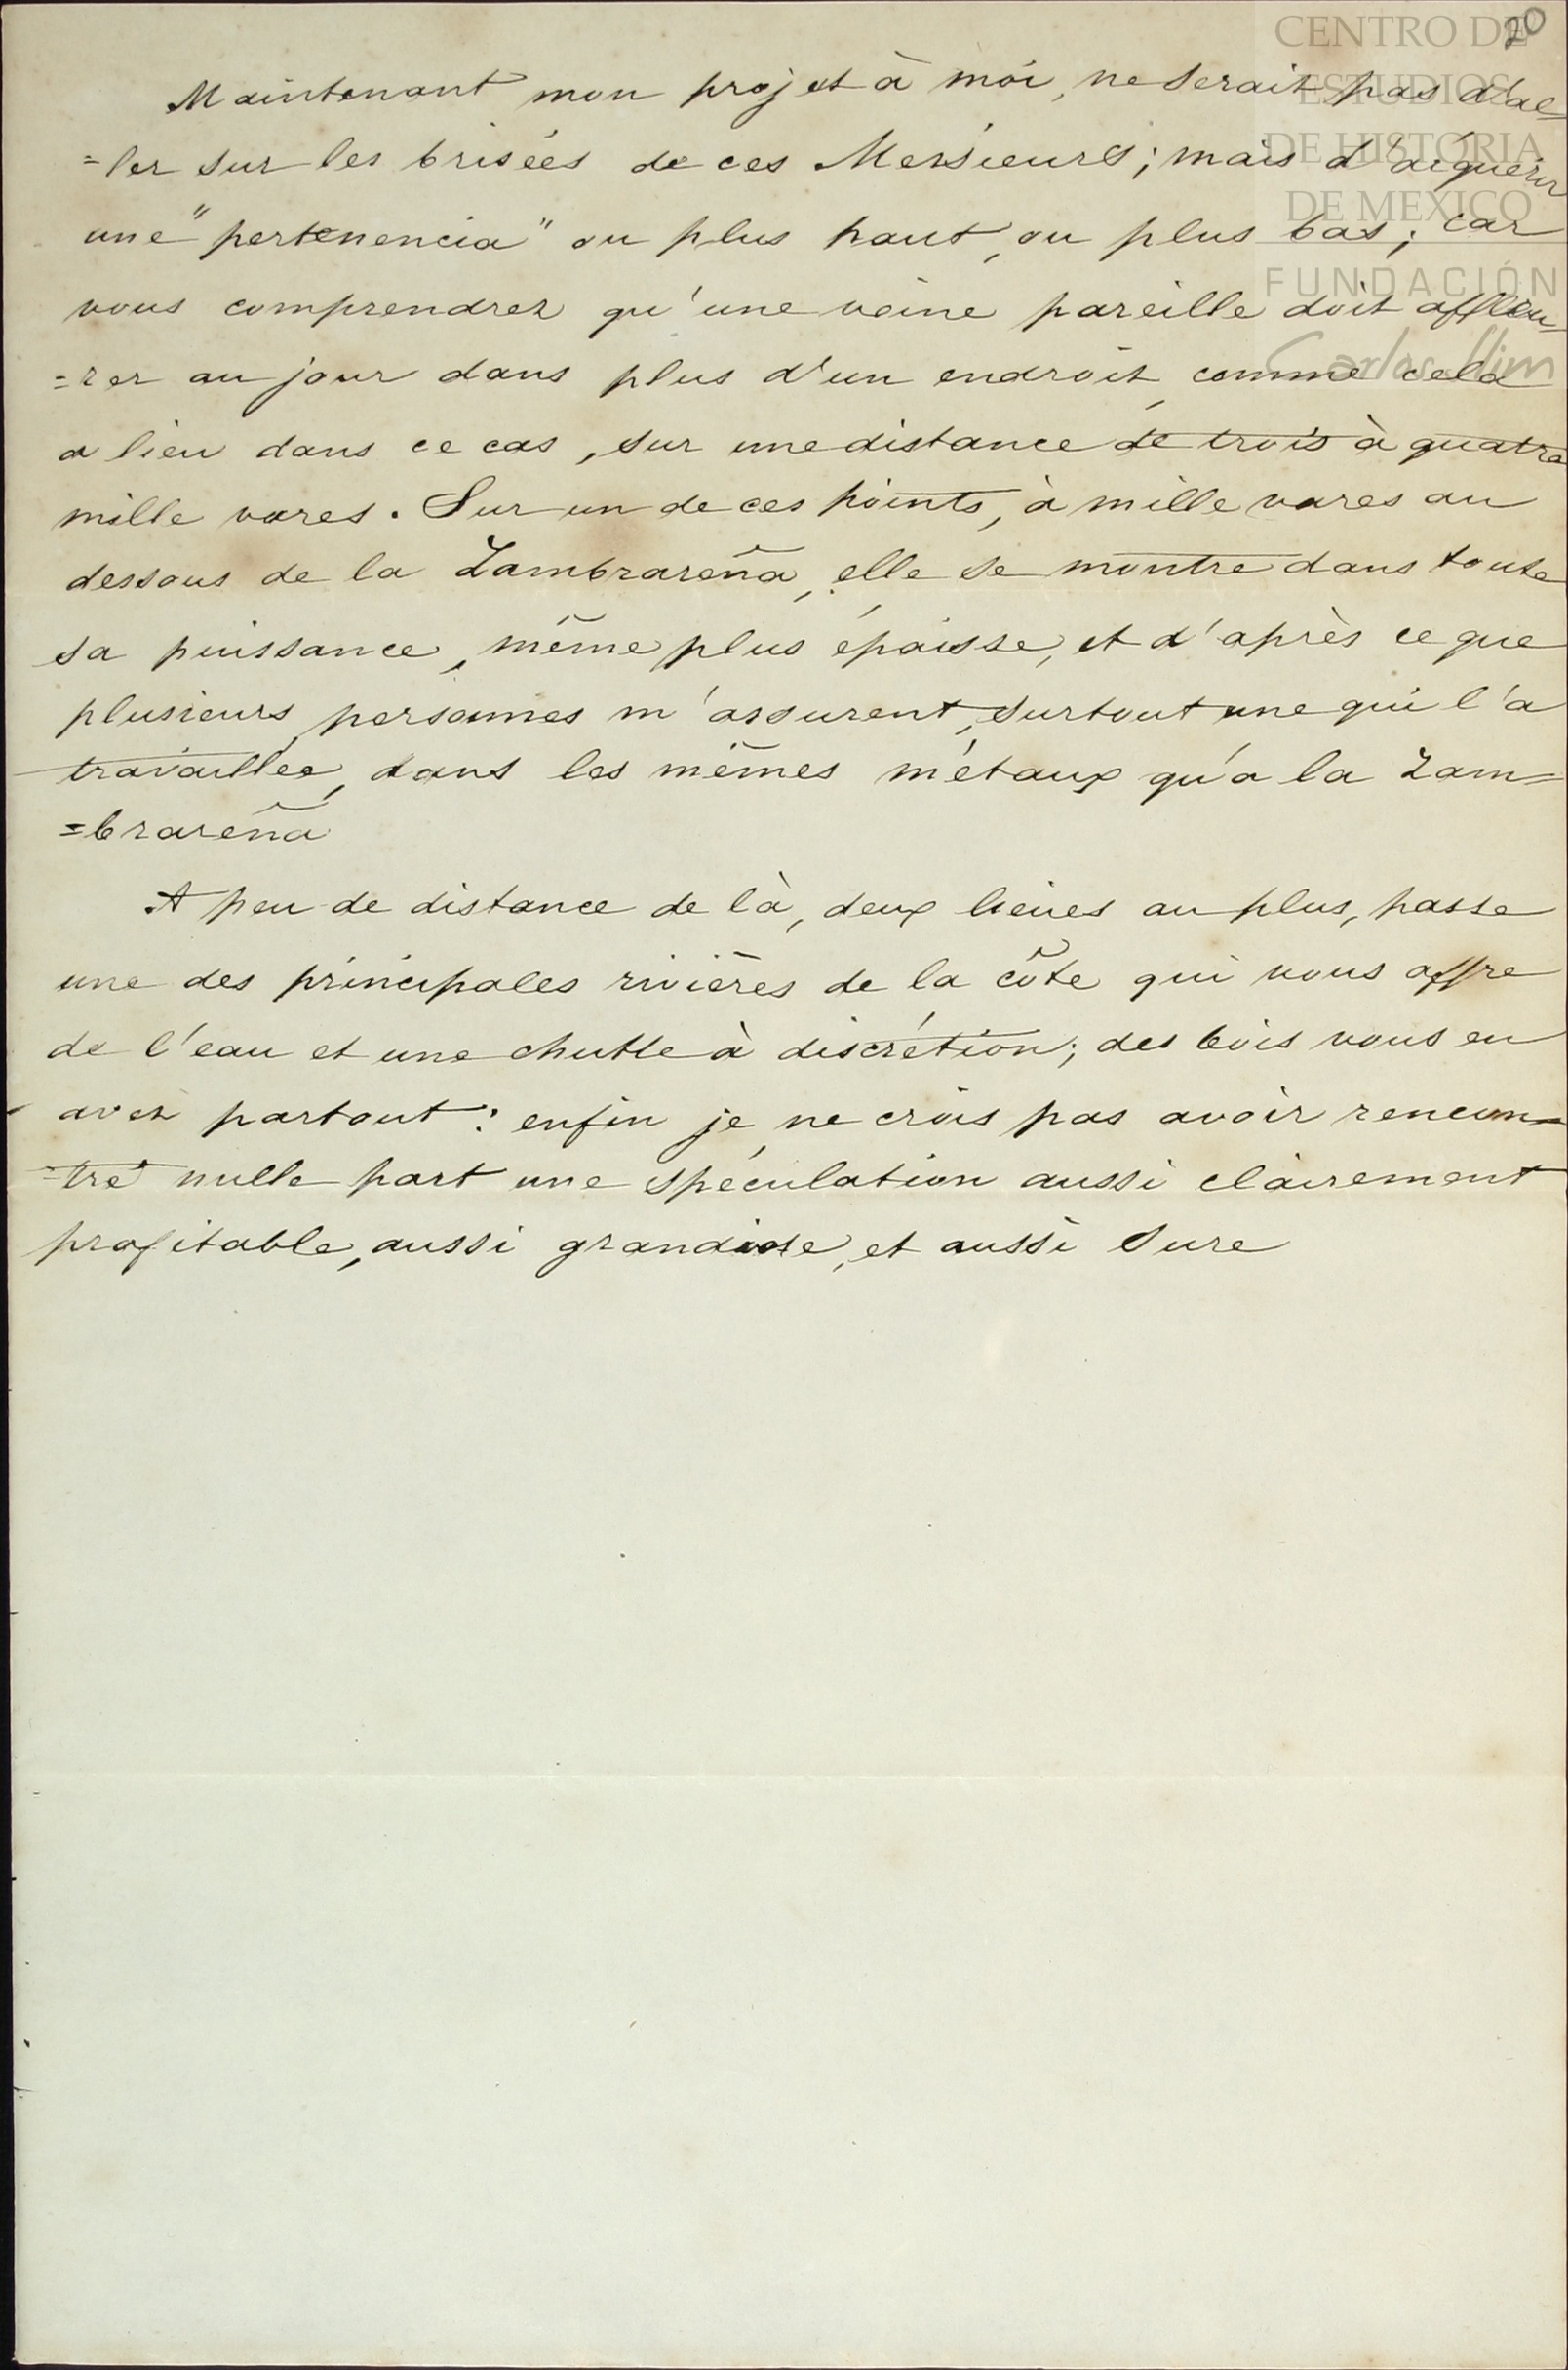 20
CENTRO DE
ESTUDIOS
DE HISTORIA
DE MEXICO
FUNDACIÓN
Carlos Slim
Maintenant mon projet à moi, ne serait pas d'al=
=ler sur les brisées de ces Messieurs; mais d'acquérir
une "pertenencia" ou plus haut, ou plus bas; car
vous comprendrez qu'une veine pareille doit affleu=
=rer au jour dans plus d'un endroit, comme cela
a lieu dans ce cas, sur une distance de trois à quatre
mille vares. Sur un de ces points, à mille vares au
dessous de la Zambrareña, elle se montre dans toute
sa puissance, même plus épaisse, et d'après ce que
plusieurs personnes m'assurent, surtout une qui l'a
travaillée, dans les mêmes métaux qu'a la Zam=
=brareña
A peu de distance de là, deux lieues au plus, passe
une des principales rivières de la côte qui vous offre
de l'eau et une chutte à discrétion; des bois vous en
avez partout: enfin je ne crois pas avoir rencon=
=tré nulle part une spéculation aussi clairement
profitable, aussi grandiose, et aussi sure